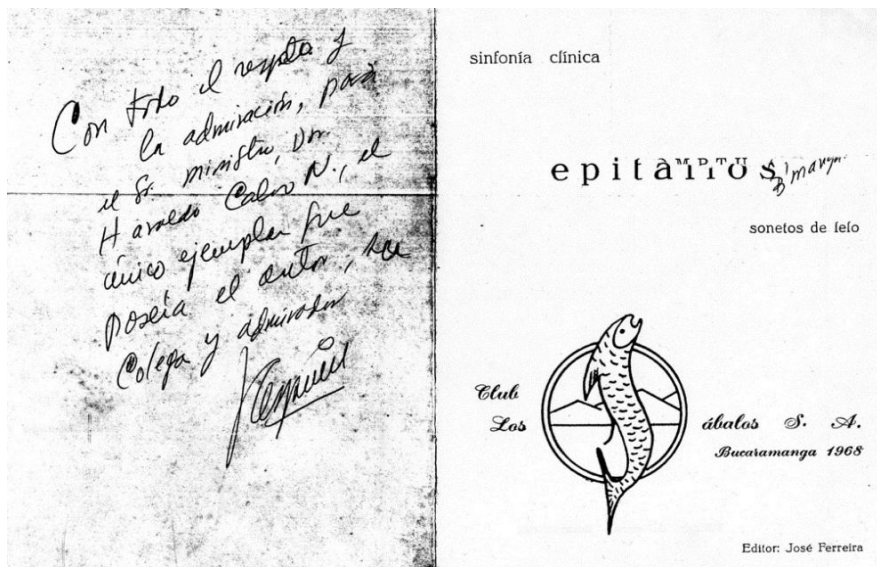 Con todo el respeto y
la admiración, para
el Sr. ministro, Dr.
Haroldo Calvo N., el
único ejemplar que
poseía el autor, su
Colega y admirador
sinfonía clínica
B'manga
sonetos de
Club
Los ábalos S. A.
Bucaramanga 1968
Editor: José Ferreira